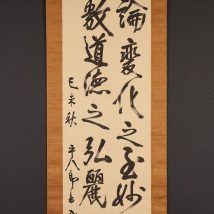 論變化之至妙
敷道德之弘麗
己未秋